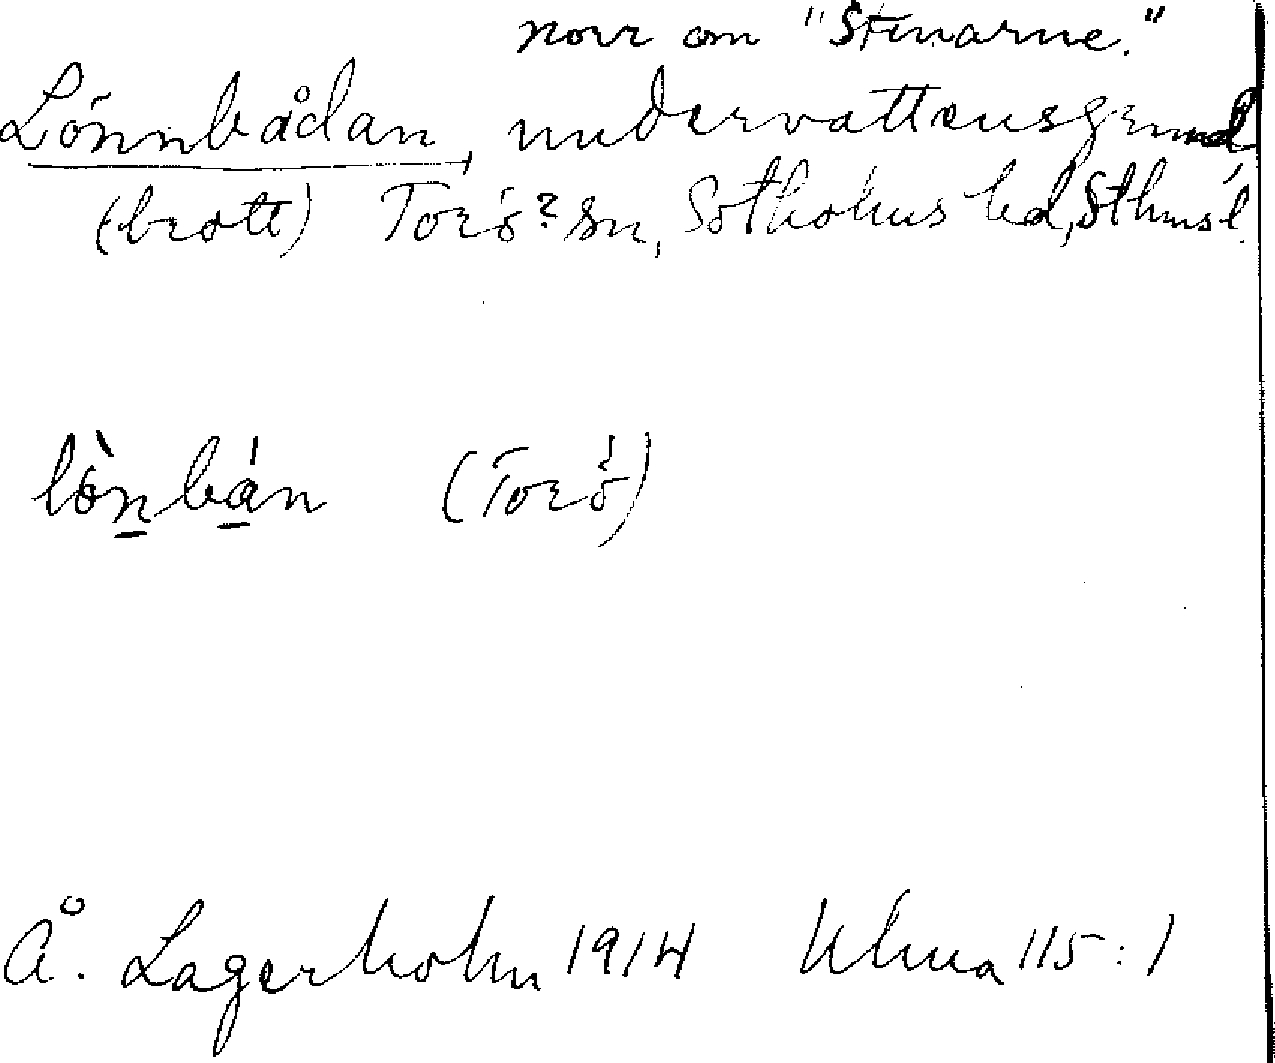 norr om "Stenarne."
Lönnbådan, undervattensgrund
(brott) Torö? sn, Sotholms hd, Sthms l.
lö̀nbán (Torö)
Å. Lagerholm 1914 Ulma 115:1